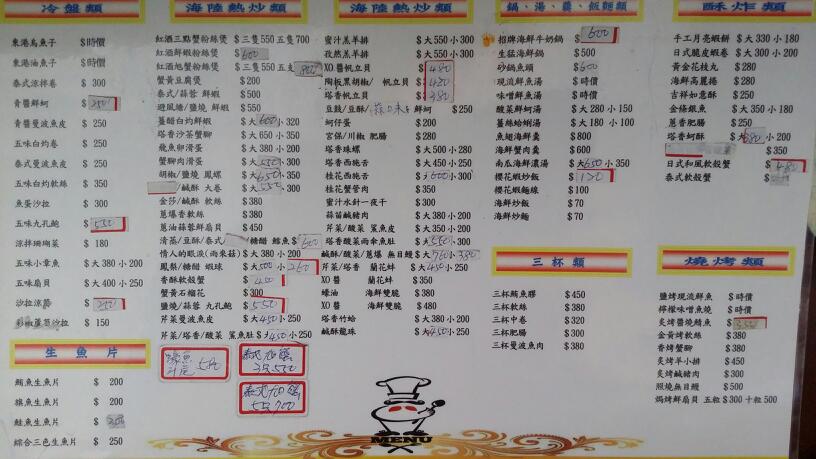 冷盤類
東港烏魚子 $時價
東港油魚子 $時價
泰式涼拌卷 $ 300
青醬鮮蚵 $ 250
青醬曼波魚皮 $ 250
五味白灼卷 $ 250
泰式曼波魚皮 $ 250
五味白灼軟絲 $ 350
魚蛋沙拉 $ 300
五味九孔鮑 $ 550
涼拌珊瑚菜 $ 180
五味小章魚 $大380 小200
五味扇貝 $大400 小250
沙拉涼筍 $
彩椒蘆筍沙拉 $ 150
生魚片
鯛魚生魚片 $ 200
旗魚生魚片 $ 200
鮭魚生魚片 $
綜合三色生魚片 $ 250
海陸熱炒類
紅酒三點蟹粉絲煲 $三隻550 五隻700
紅酒鮮蝦粉絲煲 $600
紅酒旭蟹粉絲煲 $三隻550 五隻
蟹黃豆腐煲 $200
泰式/蒜蓉 鮮蝦 $500
避風塘/鹽燒 鮮蝦 $550
薑醋白灼鮮蝦 $大600小320
塔香沙茶蟹腳 $大650 小350
飛魚卵滑蛋 $大380 小200
蟹腳肉滑蛋 $大550小300
胡椒/鹽燒 鳳螺 $大650小350
/鹹酥 大卷 $大550 300
金莎/鹹酥 軟絲 $380
蔥爆香軟絲 $380
蔥油蒜蓉鮮扇貝 $450
清蒸/豆酥/泰式/ /糖醋 鱈魚 $600
情人的眼淚(雨來菇) $大380 小200
鳳梨/糖醋 蝦球 $大500 小260
香酥軟殼蟹 $450
蟹黃石榴花 $300
鹽燒/蒜蓉 九孔鮑 $550
芹菜曼波魚皮 $大450小250
芹菜/塔香/酸菜 鯊魚肚 $大450小250
海陸熱炒類
蜜汁羔羊排 $大550 小300
孜然羔羊排 $大550 小300
XO醬帆立貝 $480
陶板黑胡椒/ 帆立貝 $480
塔香帆立貝 $380
豆豉/豆酥/ 鮮蚵 $250
蚵仔蛋 $200
宮保/川椒 肥腸 $280
塔香珠螺 $大500 小280
塔香西施舌 $大450 小250
桂花西施舌 $大600小300
桂花蟹管肉 $350
蜜汁水針一夜干 $300
蒜苗鹹豬肉 $大380 小200
芹菜/酸菜 鯊魚皮 $大350 小200
塔香酸菜雨傘魚肚 $大550小300
鹹酥/酸菜/蔥爆 無目鰻 $大760小380
芹菜/塔香 蘭花蚌 $大450小250
XO醬 蘭花蚌 $350
蠔油 海鮮雙脆 $380
XO醬 海鮮雙脆 $480
塔香竹蛤 $大380 小200
鹹酥龍珠 $大450小250
鍋、湯、羹、飯麵類
招牌海鮮牛奶鍋 $600
生猛海鮮鍋 $500
砂鍋魚頭 $600
現流鮮魚湯 $時價
味噌鮮魚湯 $時價
酸菜鮮蚵湯 $大280 小150
薑絲蛤蜊湯 $大180 小100
魚翅海鮮羹 $800
海鮮蟹肉羹 $600
南瓜海鮮濃湯 $大650小350
櫻花蝦炒飯 $120
櫻花蝦麵線 $100
海鮮炒飯 $70
海鮮炒麵 $70
三杯類
三杯鮪魚膘 $450
三杯軟絲 $380
三杯中卷 $320
三杯肥腸 $300
三杯曼波魚肉 $380
酥炸類
手工月亮蝦餅 $大330 小180
日式脆皮蝦卷 $大300 小200
黃金花枝丸 $280
海鮮高麗捲 $280
吉祥如意酥 $250
金條銀魚 $大350 小180
蔥香肥腸 $250
塔香蚵酥 $大380小200
$ 350
日式和風軟殼蟹 $480
泰式軟殼蟹 $
燒烤類
鹽烤現流鮮魚 $時價
檸檬味噌魚燒 $時價
炙烤醬燒鯖魚 $
金黃烤軟絲 $380
香烤蟹腳 $380
炙烤羊小排 $450
炙烤鹹豬肉 $300
照燒無目鰻 $500
焗烤鮮扇貝 五粒$300 十粒500
MENU